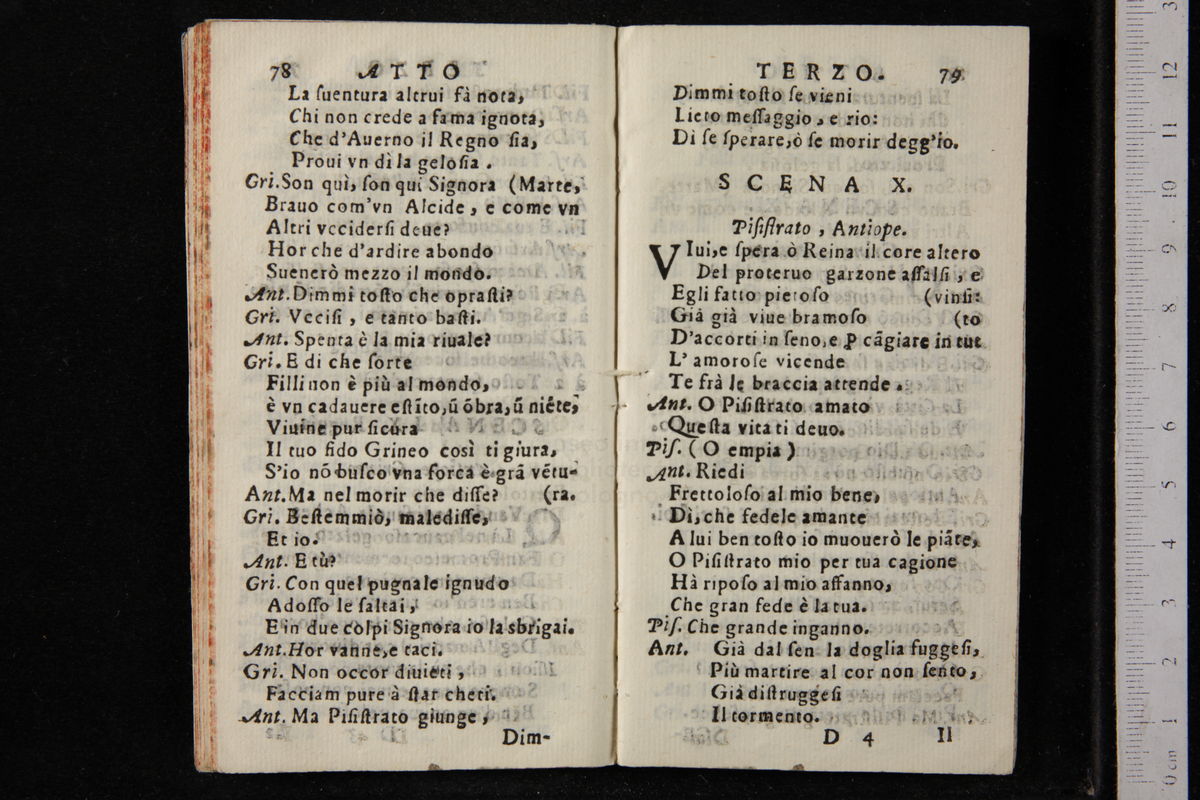 78 ATTO
La ſuentura altrui fà nota,
Chi non crede a fama ignota,
Che d'Auerno il Regno ſia,
Proui vn dì la geloſia.
Gri. Son quì, ſon qui Signora (Marte,
Brauo com'vn Alcide, e come vn
Altri vcciderſi deue?
Hor che d'ardire abondo
Suenerò mezzo il mondo.
Ant. Dimmi toſto che opraſti?
Gri. Vcciſi, e tanto baſti.
Ant. Spenta è la mia riuale?
Gri. E di che ſorte
Filli non è più al mondo,
è vn cadauere eſtĩto, ũ õbra, ũ niẽte,
Viuine pur ſicura
Il tuo fido Grineo così ti giura,
S'io nõ buſco vna forca è grã vẽtu-
Ant. Ma nel morir che diſſe? (ra.
Gri. Beſtemmiò, malediſſe,
Et io.
Ant. E tù?
Gri. Con quel pugnale ignudo
Adoſſo le ſaltai,
E in due colpi Signora io la sbrigai.
Ant. Hor vanne, e taci.
Gri. Non occor diuieti,
Facciam pure à ſtar cheti.
Ant. Ma Piſiſtrato giunge,
Dim-
TERZO. 79
Dimmi toſto ſe vieni
Lieto meſſaggio, e rio:
Dì ſe ſperare, ò ſe morir degg'io.
SCENA X.
Piſiſtrato, Antiope.
VIui, e ſpera ò Reina il core altero
Del proteruo garzone aſſalſi, e
Egli fatto pietoſo (vinſi:
Già già viue bramoſo (to
D'accorti in ſeno, e ꝑ cãgiare in tut
L'amoroſe vicende
Te frà le braccia attende.
Ant. O Piſiſtrato amato
Queſta vita ti deuo.
Piſ. (O empia)
Ant. Riedi
Frettoloſo al mio bene,
Dì, che fedele amante
A lui ben toſto io muouerò le piãte,
O Piſiſtrato mio per tua cagione
Hà ripoſo al mio affanno,
Che gran fede è la tua.
Piſ. Che grande inganno.
Ant. Già dal ſen la doglia fuggeſi,
Più martire al cor non ſento,
Già diſtruggeſi
Il tormento.
D 4 Il
0 cm 1 2 3 4 5 6 7 8 9 10 11 12 13